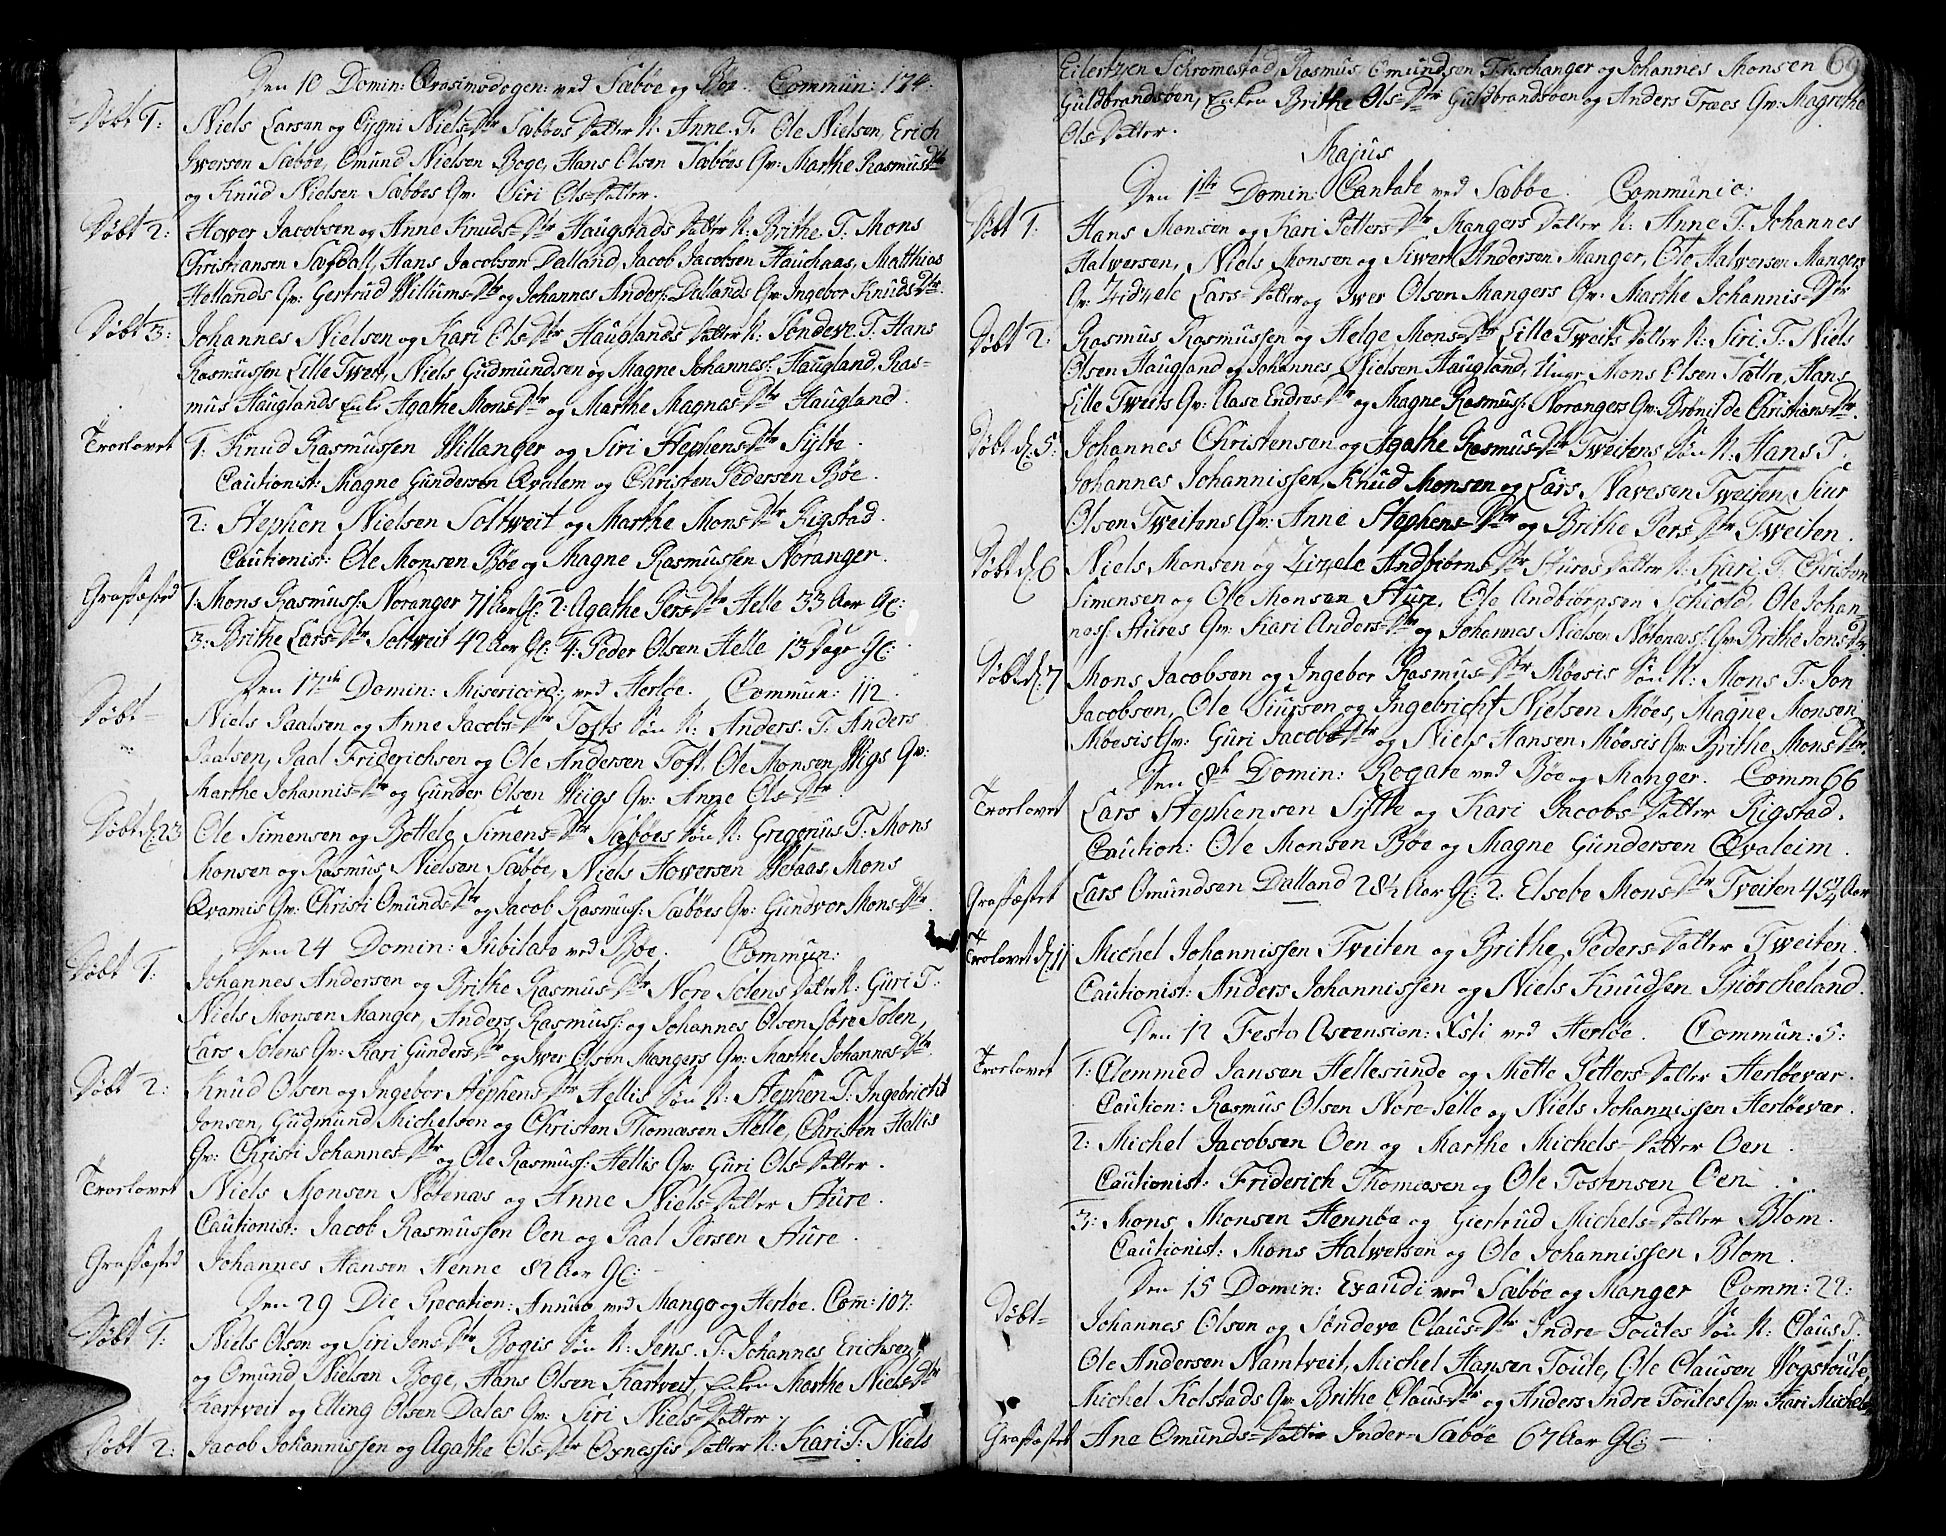 Den 10 Domin: Qvasimodogen: ved Sæbøe og Bøe. Commun: 174.
Døbt 1: Niels Larsen og Sygni Niels Dtr Sæbøes Datter N: Anne. T. Ole Nielsen, Erich
Iwersen Sæbøe, Omund Nielsen Boge, Hans Olsen Sæbøes Qv: Marthe Rasmus Dtr
og Knud Nielsen Sæbøes Qv. Siri Ols-Datter.
Døbt 2: Hower Jacobsen og Anne Knuds-Dtr Haugstads Datter N: Brithe. T. Mons
Christiansen Sægdall, Hans Jacobsen Dalland, Jacob Jacobsen Hauchaas, Matthias
Hellands Qv: Gertrud Willums-Dtr og Johannes Anders: Dallands Qv: Ingebor Knuds-Dtr
Døbt 3: Johannes Nielsen og Kari Ols-Dtr Hauglands Datter N: Søndeve. T. Hans
Rasmussen Lille Tweit, Niels Gudmundsen og Magne Johanness: Haugland, Ras-
mus Hauglands Enke Agathe Mons-Dtr og Marthe Magnes-Dtr Haugland.
Troelovet 1: Knud Rasmussen Willanger og Siri Stephens-Dtr Sylte.
Cautionist: Magne Gundersen Qvalem og Christen Pedersen Bøe.
2: Stephen Nielsen Soltweit og Marthe Mons-Dtr Rigstad.
Cautionist: Ole Monsen Bøe og Magne Rasmussen Noranger.
Graffæsted 1: Mons Rasmuss: Noranger 71 Aar Gl: 2: Agathe Pers-Dtr Helle 33 Aar Gl:
3: Brithe Lars-Dtr Soltveit 42 Aar Gl: 4: Peder Olsen Helle 13 Dage Gl:
Den 17de Domin: Misericord: ved Herløe. Commun: 112.
Døbt- Niels Paalsen og Anne Jacobs-Dtr Tofts Søn N: Anders. T. Anders
Paalsen, Paal Friderichsen og Ole Andersen Toft, Ole Monsen Wiigs Qv:
Marthe Johannis-Dtr og Gunder Olsen Wiigs Qv: Anne Ols-Dtr.
Døbt d: 23 Ole Simensen og Bottele Simens-Dtr Sæbøes Søn N: Gregorius T: Mons
Monsen og Rasmus Nielsen Sæbøe, Niels Howersen Webaas, Mons
Qvamis Qv: Christi Omunds-Dtr og Jacob Rasmuss: Sæbøes Qv: Gundvor Mons-Dtr.
Den 24 Domin: Jubilate ved Bøe. Commun:
Døbt 1: Johannes Andersen og Brithe Rasmus-Dtr Nore Solens Datter N: Guri T.
Niels Monsen Manger, Anders Rasmuss: og Johannes Olsen Nore Solen,
Lars Solens Qv: Kari Gunders-Dtr og Iwer Olsen Mangers Qv: Marthe Johannes-Dtr.
Døbt 2: Knud Olsen og Ingebor Stephens-Dtr Hellis Søn N: Stephen T: Ingebricht
Jonsen, Gudmund Michelsen og Christen Thomæsen Helle, Christen Hellis
Qv: Christi Johannes-Dtr og Ole Rasmuss: Hellis Qv: Guri Ols-Datter.
Troelovet Niels Monsen Nøtenæs og Anne Niels-Datter Sture.
Cautionist: Jacob Rasmussen Oen og Paal Persen Sture.
Graffæsted Johannes Hansen Nenne 82 Aar Gl:
Den 29 Die Precation: Annuo ved Manger og Herløe. Com: 107:
Døbt 1: Niels Olsen og Siri Jens-Dtr Bogis Søn N: Jens. T. Johannes Erichsen
og Omund Nielsen Boge, Hans Olsen Kartveit, Enken Marthe Niels-Dtr
Kartveit og Elling Olsen Dales Qv: Siri Niels-Datter.
Døbt 2: Jacob Johannissen og Agathe Ols-Dtr Oxnessis Datter N: Kari T. Niels
Eilertzen Schromestad, Rasmus Omundsen Tuschanger og Johannes Monsen 69
Guldbrandsøen, Enken Brithe Ols-Dtr Guldbrandsøen og Anders Træes Qv: Magrethe
Ols-Datter.
Majus
Den 1ste Domin: Cantate ved Sæbøe. Communic:
Døbt 1: Hans Monsen og Kari Petters-Dtr Mangers Datter N: Anne T. Johannes
Halwersen, Niels Monsen og Siwert Andersen Manger, Ole Halwersen Mangers
Qv: Lars-Datter og Iwer Olsen Mangers Qv: Marthe Johannis-Dtr
Døbt 2: Rasmus Rasmussen og Helge Mons-Dtr Lille Tweits Datter N: Siri. T. Niels
Olsen Haugland og Johannes Nielsen Haugland, Unge Mons Elsen Sættre, Hans
Lille Tweits Qv: Aase Endres-Dtr og Magne Rasmuss: Norangers Qv: Brønilde Christians-Dtr.
Døbt d: 5: Johannes Christensen og Agathe Rasmus-Dtr Tweitens Søn N: Hans T.
Johannes Johannissen, Knud Monsen og Lars Navesen Tweiten, Siur
Olsen Tweitens Qv: Anne Stephens-Dtr og Brithe Pers-Dtr Tweiten.
Døbt d: 6 Niels Monsen og Zizele Andbiørns-Dtr Stures Datter N: Kari. T. Christen
Simensen og Ole Monsen Sture, Ole Andbiørnsen Schiold, Ole Johan-
ness: Stures Qv: Kari Anders-Dtr og Johannes Nielsen Nøtenæs: Qv: Brithe Jons Dtr.
Døbt d: 7 Mons Jacobsen og Ingebor Rasmus-Dtr Møesis Søn N: Mons T. Jon
Jacobsen, Ole Siursen og Ingebricht Nielsen Møes, Magne Monsen
Møesis Qv: Guri Jacobs-Dtr og Niels Hansen Møesis Qv: Brithe Mons-Dtr.
Den 8de Domin: Rogate ved Bøe og Manger. Comm 66
Troelovet Lars Stephensen Sylte og Kari Jacobs-Datter Rigstad.
Caution: Ole Monsen Bøe og Magne Gundersen Qvaleim.
Graffæstet Lars Omundsen Dalland 28½ Aar Gl: 2: Elsebe Mons-Dtr Tveiten Aar
Troelovet d: 11 Michel Johannissen Tveiten og Brithe Peders-Datter Tweiten.
Cautionist: Anders Johannissen og Niels Knudsen Biørcheland.
Den 12 Festo Ascension: Xsti ved Herløe. Commun: 5:
Troelovet 1: Clemmed Jansen Hellesunde og Mette Petters-Datter Herløevær.
Caution: Rasmus Olsen Nore-Selle og Niels Johannissen Herløevær.
2: Michel Jacobsen Oen og Marthe Michels-Datter Oen.
Cautionist: Friderich Thomæsen og Ole Tostensen Oen.
3: Mons Monsen Hennøe og Giertrud Michels-Datter Blom.
Cautionist: Mons Halwersen og Ole Johannissen Blom.
Den 15 Domin: Exaudi ved Sæbøe og Manger Comm: 22:
Døbt- Johannes Olsen og Søndeve Claus-Dtr Indre-Toutes Søn N: Claus T:
Ole Andersen Namtveit, Michel Hansen Toute, Ole Clausen Wogstoule,
Michel Kolstads Qv: Brithe Claus-Dtr og Anders Indre Toutes Qv: Kari Michels
Graffæstet Ane Omunds-Datter Inder-Sæbøe 67 Aar Gl: